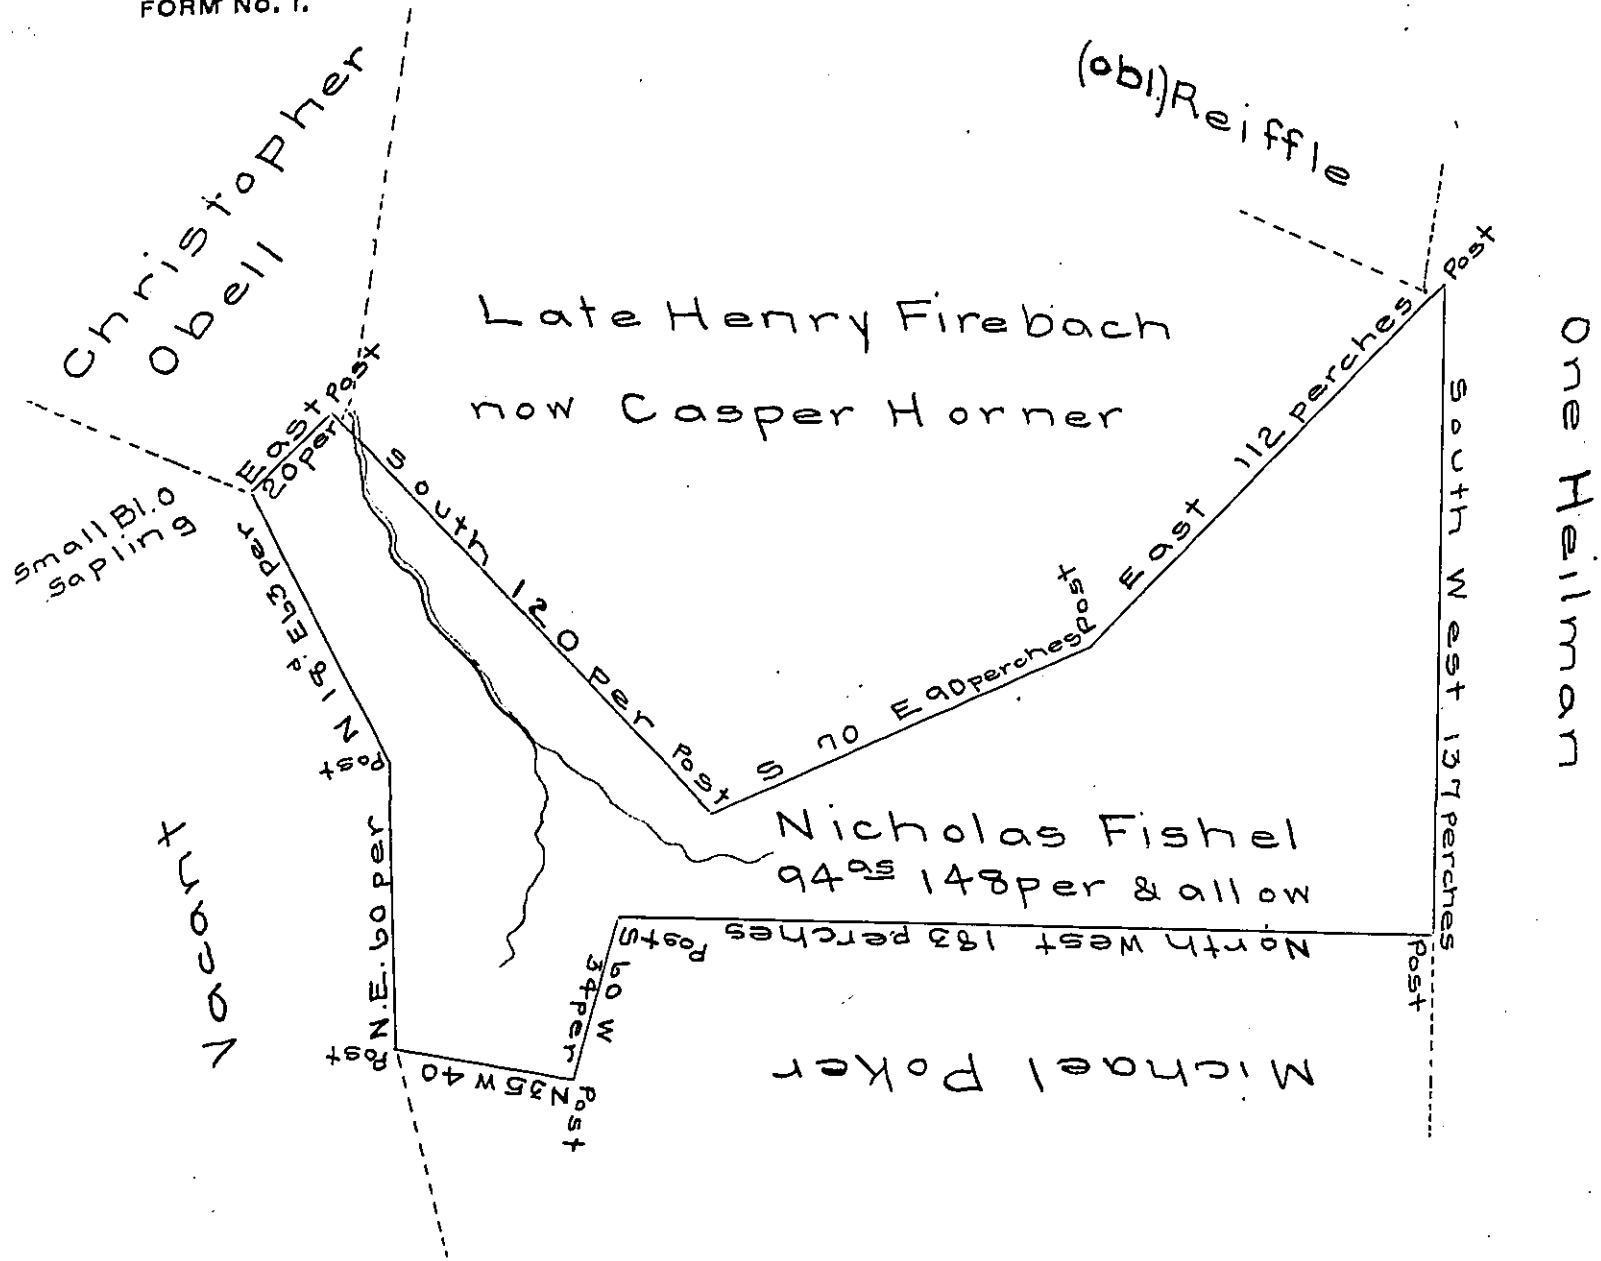 FORM NO. 1.
Christopher
Obell
(obl.)Reiffle
Post
Late Henry Firebach
now Casper Horner
One Heilman
Post
East
20 per
Small Bl.O
Sapling
South 120 per
Post
S 70 E 90 perches
Post
East 112 perches
South West 137 perches
Post
North West 183 perches
Post
S 60 W
34 per
Post
N 35 W 40
Post
N.E. 60 per
Post
N 18.d E 63 per
Nicholas Fishel
94as 148 per & allow
Vacant
Michael Poker